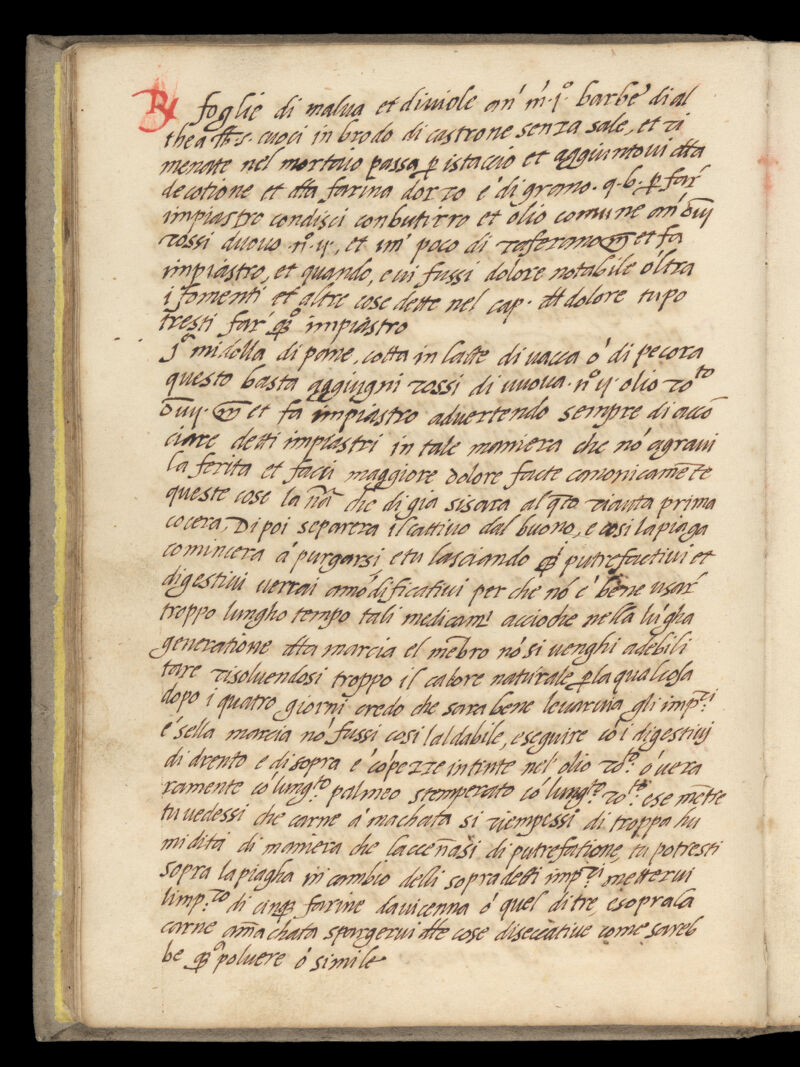 ℞ foglie di malua et diuiole an̄ m̄·j° barbe dial
thea cuoci in brodo di castrone senza sale, et ri
menate nel mortaio passa ꝑ istaccio et aggiuntoui dta
decotione et dta farina dorzo e di grano· q·b· ꝑ far
impiastro condisci conbutirro et olio comune an̄
rossi duouo ·n°·ij·, et un poco di zaferano et fa
impiastro, et quando, e ui fussi dolore notabile oltra
i fomenti et altre cose dette nel cap· dl dolore tu po
tresti far q° impiastro
midolla di pane, cotta in latte di uacca ó di pecora
questo basta aggiugni rossi di uuoua· n° ij· olio roto
et fa impiastro aduertendo sempre di acco
ciare detti impiastri in tale maniera che nō agraui
la ferita et facci maggiore dolore facte canonicamēte
queste cose la nā che di gia sisara al qto riauta prima
cocera, Di poi separera il cattiuo dal buono, e cosi la piaga
comincera á purgarsi e tu lasciando putrefactiui et
digestiui uerrai amōdificatiui per che nō e bene usar
troppo lungho tempo tali medicamī accioche nella lūgha
generatione dta marcia el mēbro nō si uenghi adebili
tare risoluendosi troppo il calore naturale ꝑ la qual cosa
dopo i quatro giorni credo che sara bene leuarcia gli imp.ri
e sella marcia nō fussi cosi laldabile, e seguire cō i digestiuj
di drento e disopra e cō pezze intinte nel olio ro.to ó uera
ramente cō lung.to palmeo stemperato cō lung.to ro.to: e se mētre
tu uedessi che carne á machata si riempessi di troppa hu
midita di maniera che laccenasi di putrefatione, tu potresti
sopra la piagha in cambio delli sopradetti imp.ri metterui
limp.ro di cinq farine dauicenna ó quel di tre, e sopra la
carne amachata spargerui dlle cose diseccatiue come sareb
be q° poluere ó simile